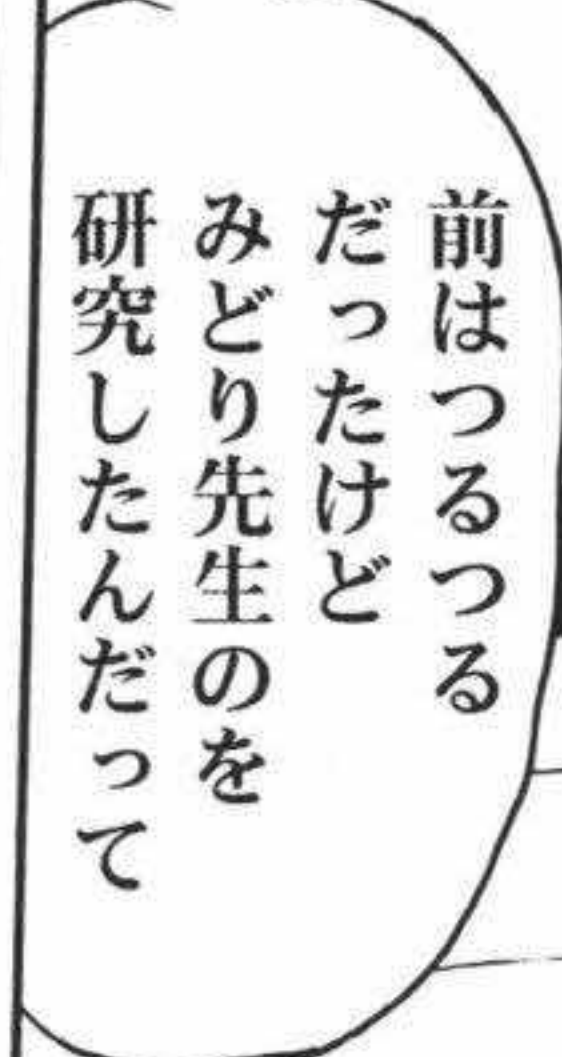 前はつるつる
だったけど
みどり先生のを
研究したんだって